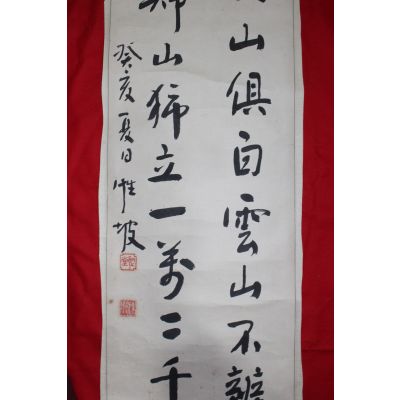 山俱白雲山不辨
歸山獨立一萬二千
癸亥夏日 性坡